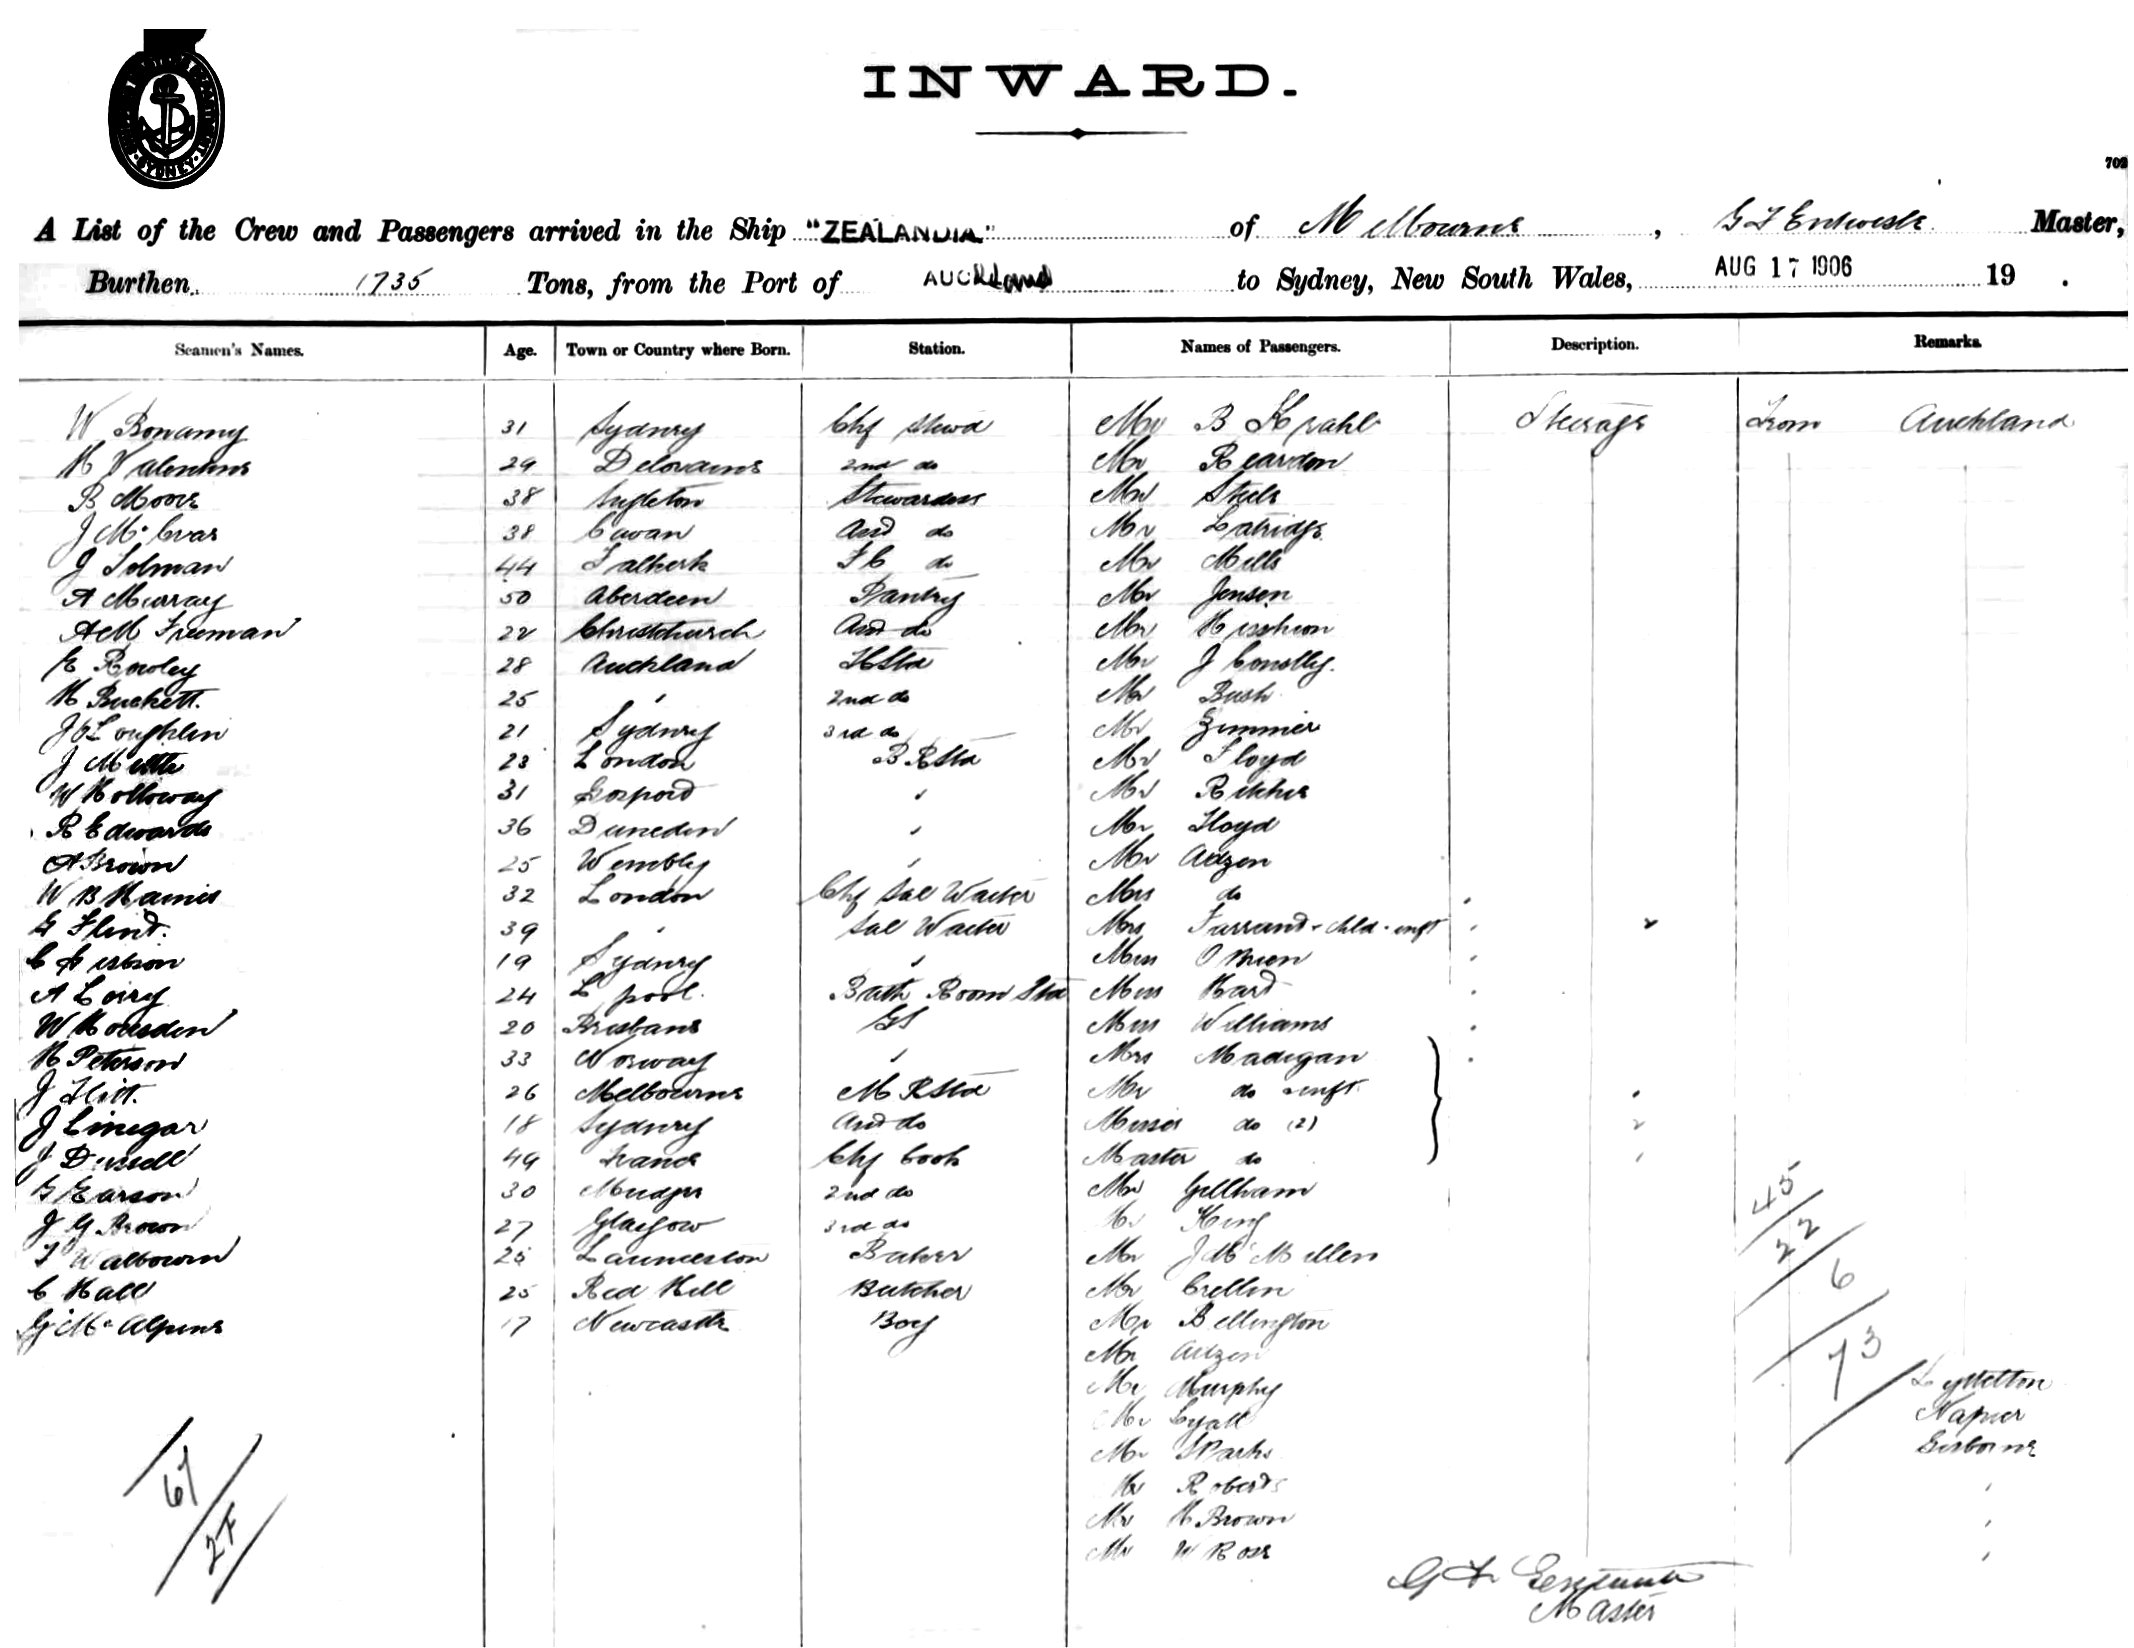 INWARD.
702
A List of the Crew and Passengers arrived in the Ship "ZEALANDIA" of Melbourne, G F Entwistle Master,
Burthen 1735 Tons, from the Port of AUCKLAND to Sydney, New South Wales, AUG 17 1906 19 .
Seamen's Names. Age. Town or Country where Born. Station. Names of Passengers. Description. Remarks.
W Bonamy 31 Sydney Chf Stwd Mr B Krahl Steerage From Auckland
H Valentine 29 2nd do Mr Reardon
B Moore 38 Singleton Stewardess Mr Steele
J Mc 38 Cavan Asst do Mr
J Solman 44 Falkirk F C do Mr Mills
A Murray 50 Aberdeen Pantry Mr Jensen
A M Freeman 22 Christchurch Asst do Mr
E Rowley 28 Auckland Std Mr J Conolly.
H Buckett. 25 " 2nd do Mr Bush
J O'Loughlin 21 Sydney 3rd do Mr Zimmier
J 23 London B R Std Mr Floyd
W Holloway 31 Gosport " Mr Ritchie
R Edwards 36 Dunedin " Mr Lloyd
A Brown 25 Wembly " Mr Adzen
W B Harris 32 London Chf Sal Waiter Mrs do
G Flint. 39 " Sal Waiter Mrs Farrand + chld + inft "
C Gibson 19 Sydney " Miss O'Brien
A Loiry 24 L'pool. Bath Room Std Miss Hart
W Housden 20 Brisbane GS Miss Williams
H Peterson 33 Norway " Mrs Madigan
J Flitt. 26 Melbourne M R Std Mr do + inft "
J Linegar 18 Sydney Asst do Misses do (2) "
J 49 France Chf Cook Master do "
G Earson 30 Mudgee 2nd do Mr Gillham
J G Brown 27 Glasgow 3rd do Mr King
T Walbourn 25 Launceston Baker Mr J McMillen
C Hall 25 Red Hill Butcher Mr Crellin
G McAlpine 17 Newcastle Boy Mr Bellington
Mr Adzen
Mr Murphy Lyttelton
Mr Lyall Napier
Mr Sparks Gisborne
Mr Roberts "
Mr H Brown "
Mr W Ross "
45
22
6
73
61
27
G F Entwistle
Master